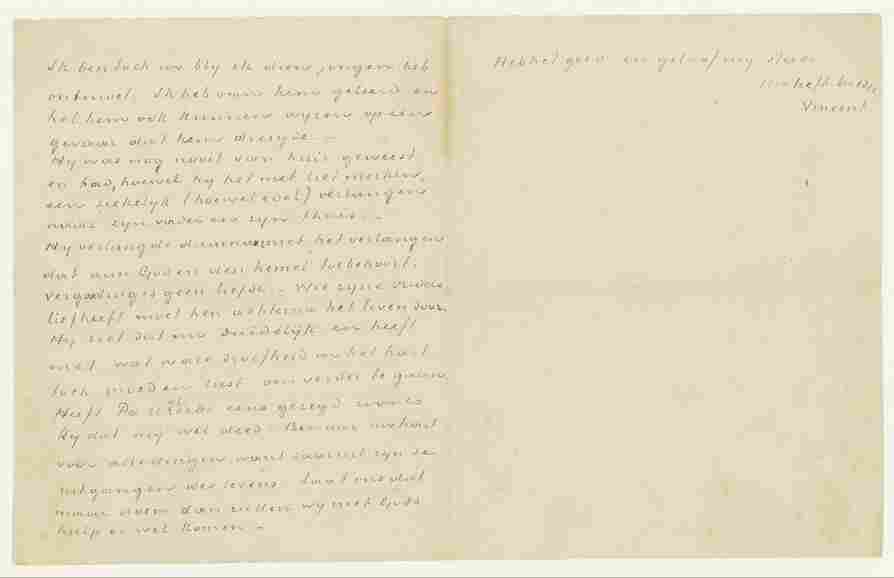 Ik ben toch zoo bly ik dien jongen heb
ontmoet. Ik heb van hem geleerd en
heb hem ook kunnen wyzen op een
gevaar dat hem dreigde. –
Hy was nog nooit van huis geweest
en had, hoewel hy het niet liet merken,
een ziekelyk (hoewel edel) verlangen
naar zyn vader en zyn thuis. –
Hy verlangde daarnaar met het verlangen
dat aan God en den hemel toebehoort.
Vergoding is geen liefde. – Wie zyne ouders
liefheeft moet hen achterna het leven door.
Hy ziet dat nu duidelyk en heeft
met wat ware droefheid in het hart
toch moed en lust om verder te gaan.
Heeft Pa eens gezegd
hy dat nog wel deed. Bewaar uw hart
voor alle dingen, want daaruit zyn de
uitgangen des levens. Laat ons dat
maar doen dan zullen wy met Gods
hulp er wel komen –
Heb het goed en geloof my steeds
Uw liefh. broeder
Vincent